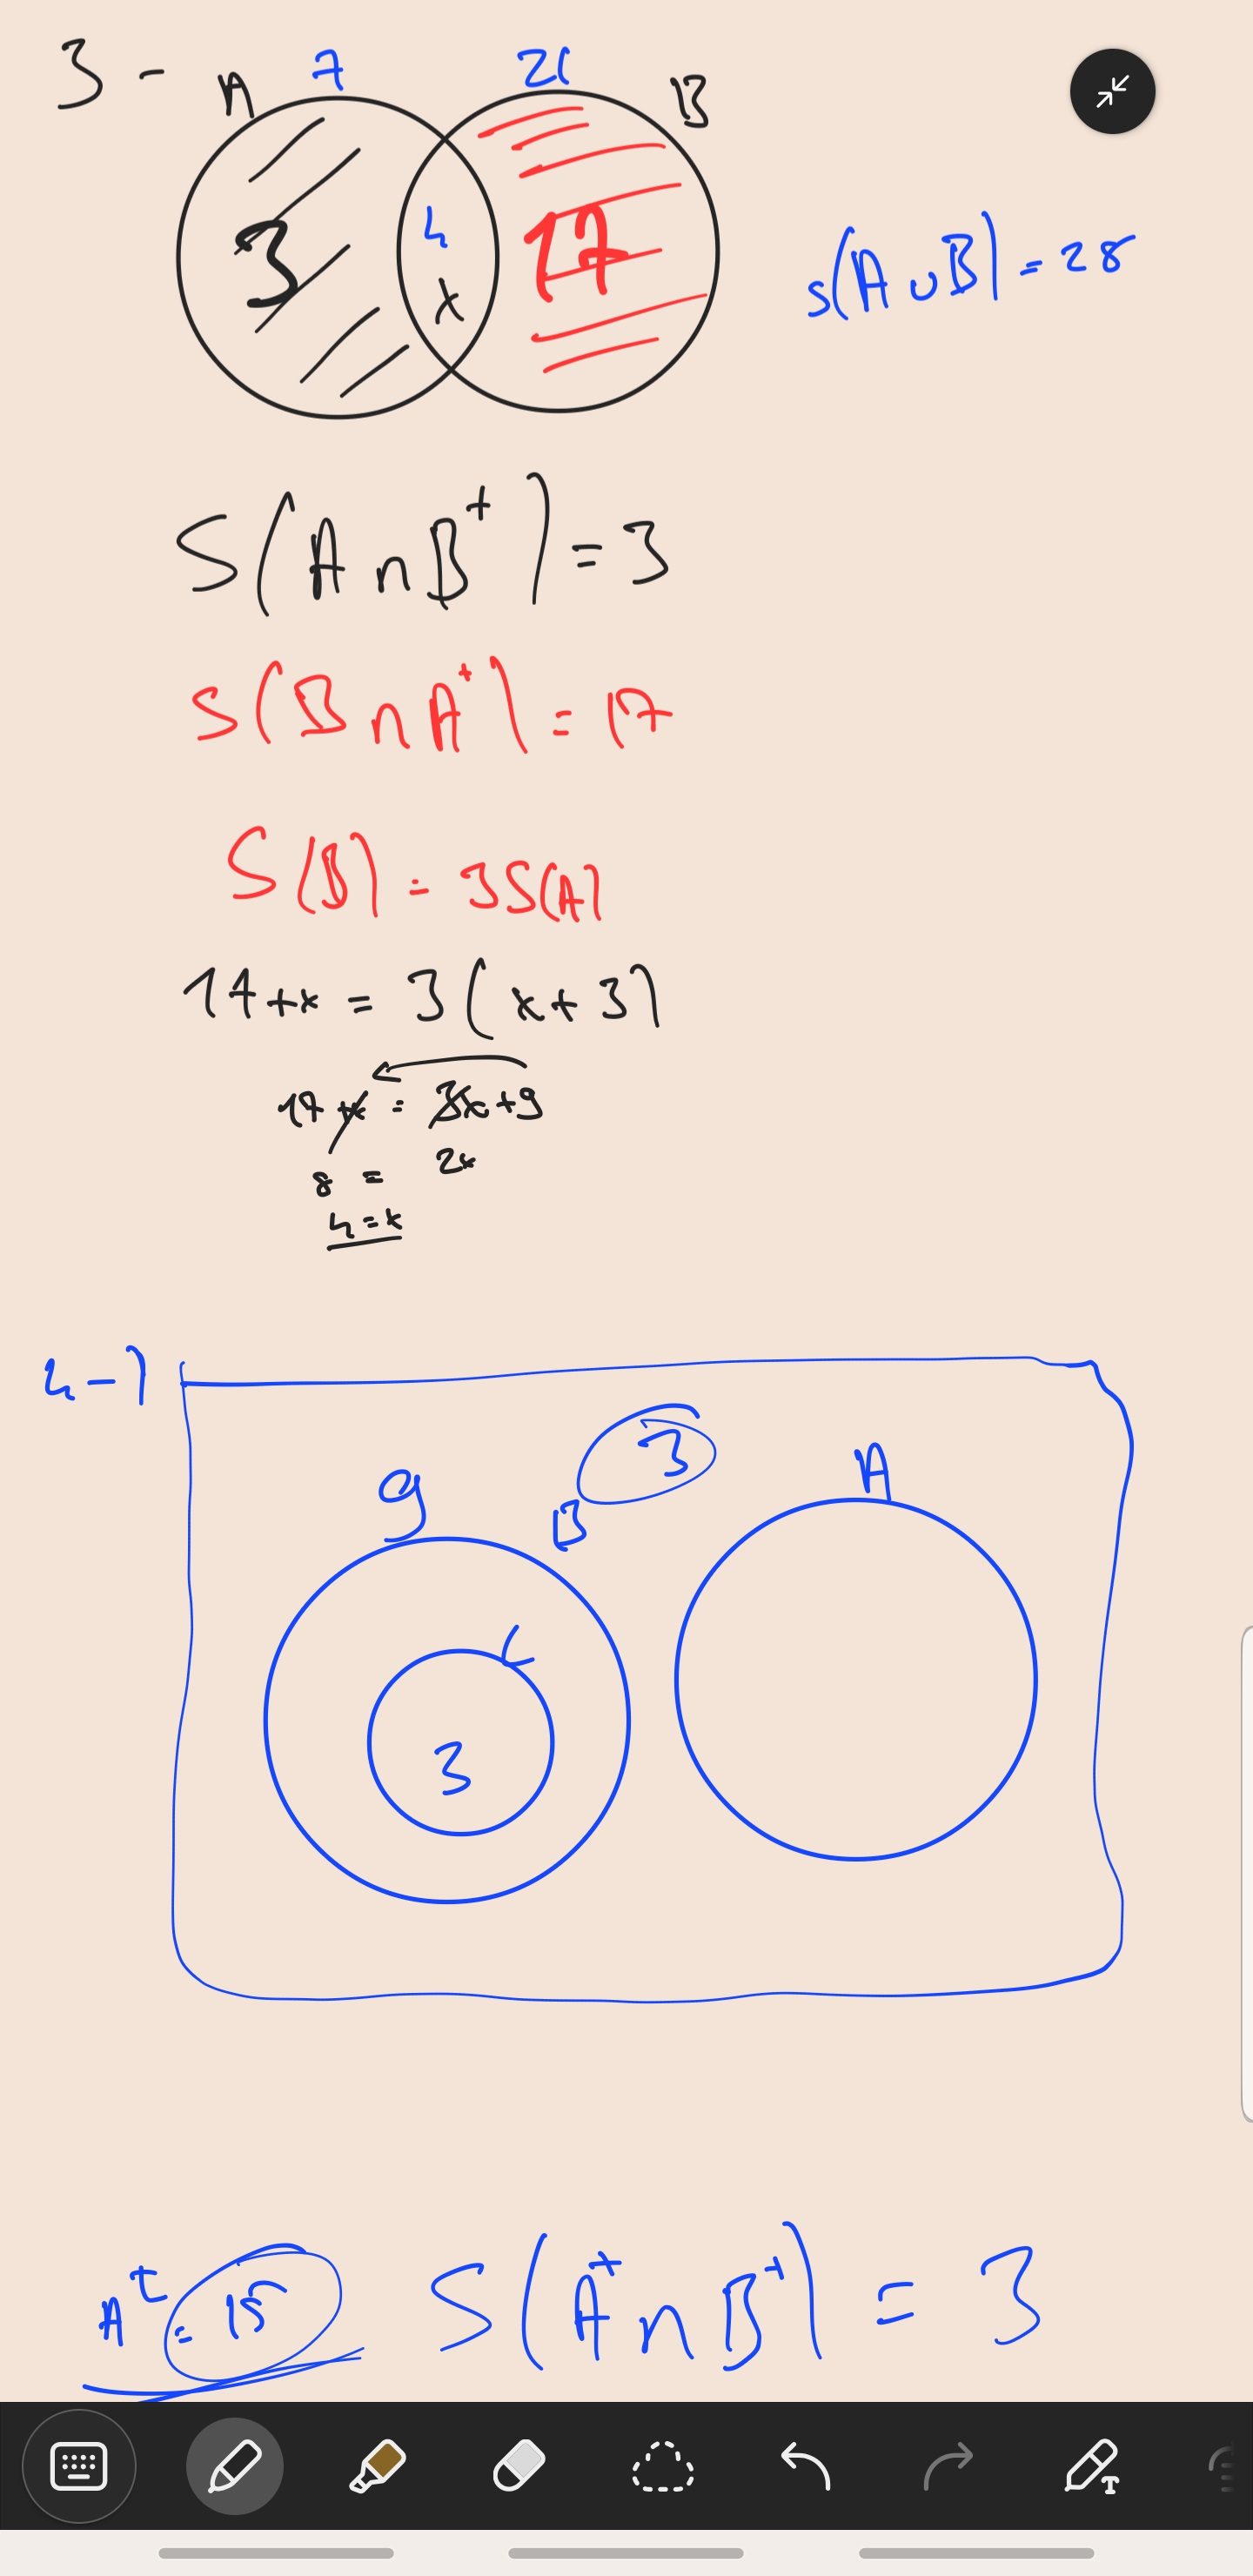 3 - A 7 21 B
3 4 x 17 s(A∪B) = 28
S(A∩B⁺) = 3
S(B∩A⁺) = 17
S(B) = 3S(A)
17+x = 3(x+3)
17+x = 3x+9
8 = 2x
4 = x
4-)
9 B 3 A
C
3
A⁺ = 15 S(A⁺∩B⁺) = 3
T